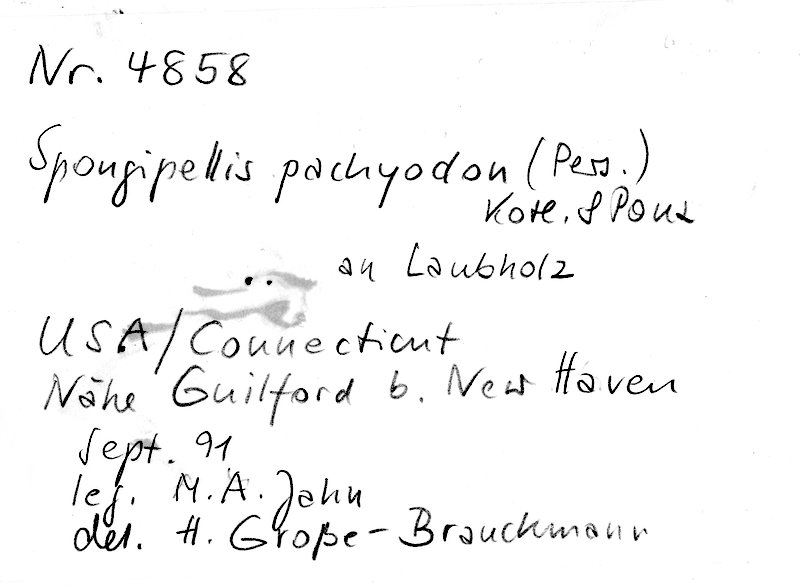 Nr. 4858
Spongipellis pachyodon (Pers.)
Kotl. & Pouz
an Laubholz
USA/Connecticut
Nähe Guilford b. New Haven
Sept. 91
leg. M.A. Jahn
det. H. Große-Brauckmann